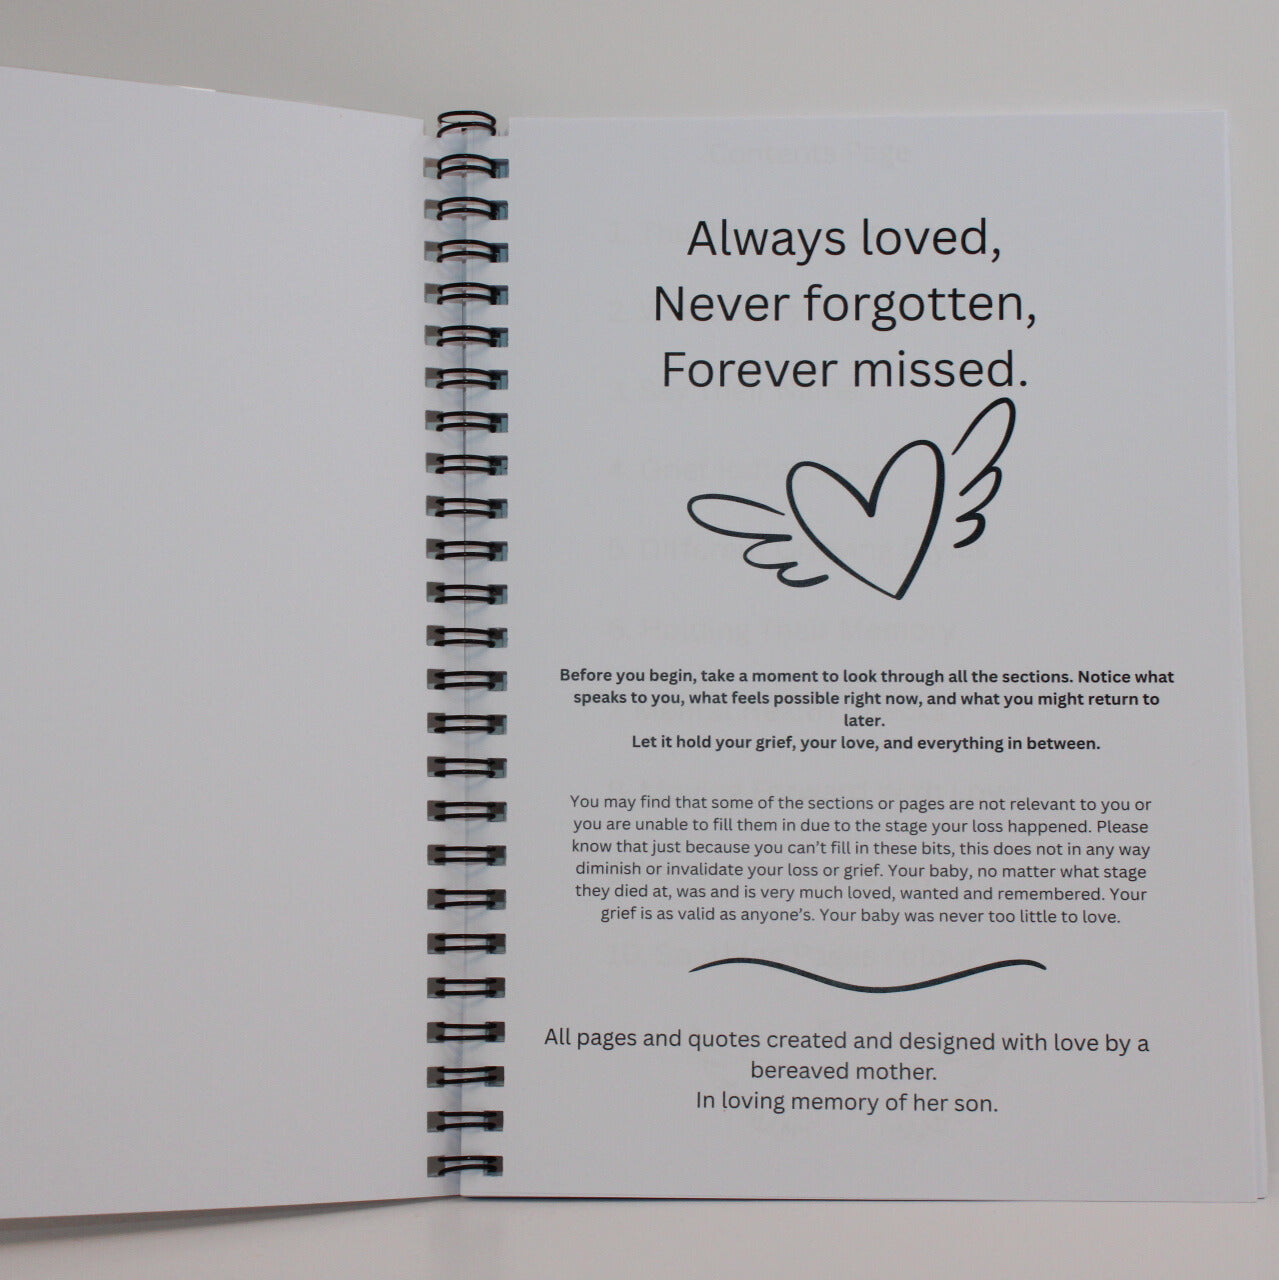 Contents Page
Always loved,
Never forgotten,
Forever missed.
Before you begin, take a moment to look through all the sections. Notice what
speaks to you, what feels possible right now, and what you might return to
later.
Let it hold your grief, your love, and everything in between.
You may find that some of the sections or pages are not relevant to you or
you are unable to fill them in due to the stage your loss happened. Please
know that just because you can’t fill in these bits, this does not in any way
diminish or invalidate your loss or grief. Your baby, no matter what stage
they died at, was and is very much loved, wanted and remembered. Your
grief is as valid as anyone’s. Your baby was never too little to love.
All pages and quotes created and designed with love by a
bereaved mother.
In loving memory of her son.